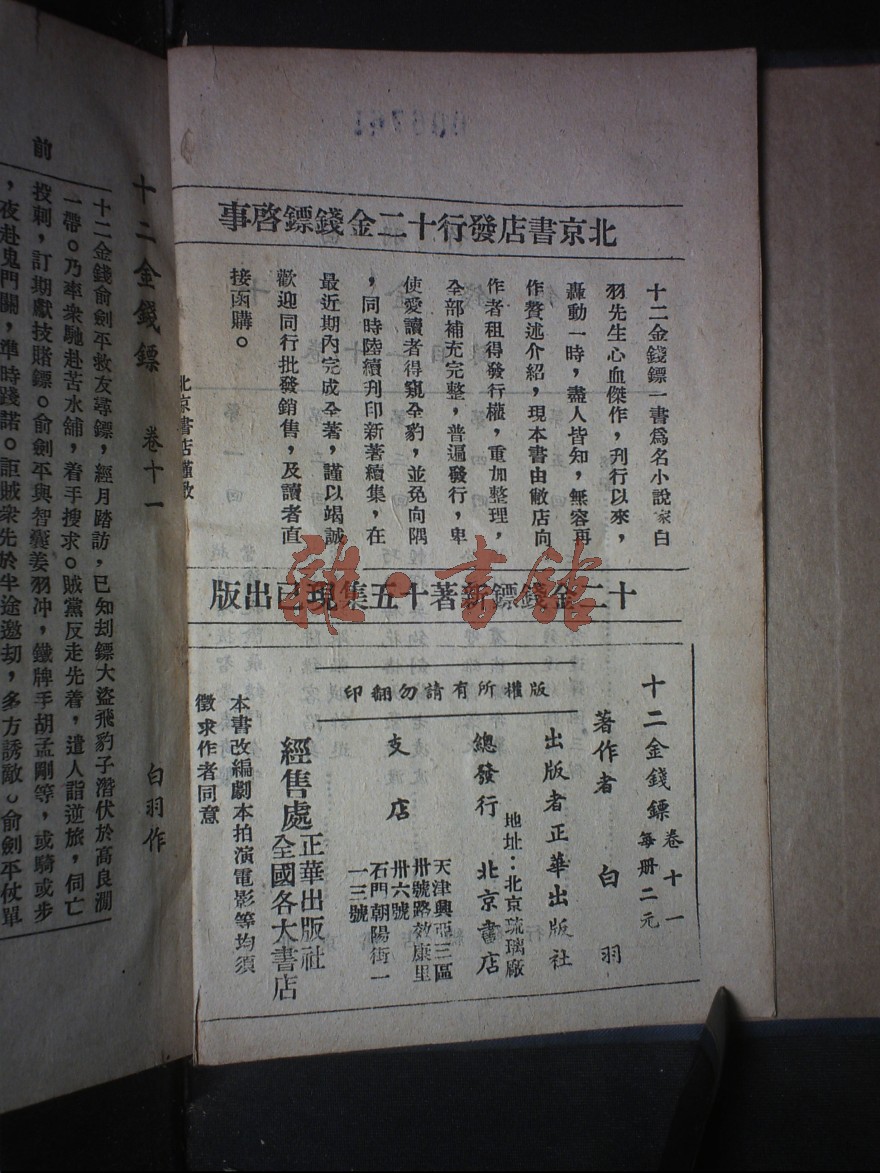 北京書店發行十二金錢鏢啓事
十二金錢鏢一書爲名小說家白
羽先生心血傑作，刊行以來，
轟動一時，盡人皆知，無容再
作贅述介紹，現本書由敝店向
作者租得發行權，重加整理，
全部補充完整，普遍發行，卑
使愛讀者得窺全豹，並免向隅
，同時陸續刋印新著續集，在
最近期內完成全著，謹以竭誠
歡迎同行批發銷售，及讀者直
接函購。
北京書店謹啟
十二金錢鏢新著十五集現已出版
十二金錢鏢 卷十一 每册二元
著作者 白羽
版權所有請勿翻印
出版者 正華出版社
地址：北京琉璃廠
總發行 北京書店
支店
天津興亞三區
卅號路效康里
卅六號
石門朝陽街一
一三號
經售處 正華出版社
全國各大書店
本書改編劇本拍演電影等均須
徵求作者同意
前
十二金錢鏢 卷十一 白羽作
十二金錢俞劍平救友尋鏢，經月踏訪，已知刦鏢大盜飛豹子潛伏於高良澗
一帶。乃率衆馳赴苦水舖，着手搜求。賊黨反走先着，遣人詣逆旅，伺亡
投刺，訂期獻技賭鏢。俞劍平與智囊姜羽冲，鐵牌手胡孟剛等，或騎或步
，夜赴鬼門關，準時踐諾。詎賊衆先於半途邀刧，多方誘敵。俞劍平仗單
雜·書館